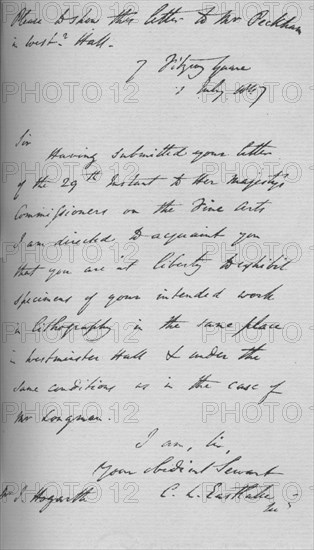 Please to show this letter to Mr Peckham
in Westr. Hall.
7 Fitzroy Square
1 July 1847
Sir
Having submitted your letter
of the 29th Instant to Her Majesty's
Commissioners on the Fine Arts
I am directed to acquaint you
that you are at liberty to exhibit
specimens of your intended work
in lithography in the same place
in Westminster Hall & under the
same conditions as in the case of
Mr Longman.
I am, Sir,
Your obedient Servant
C. L. Eastlake
Mr J. Hogarth
PHOTO 12